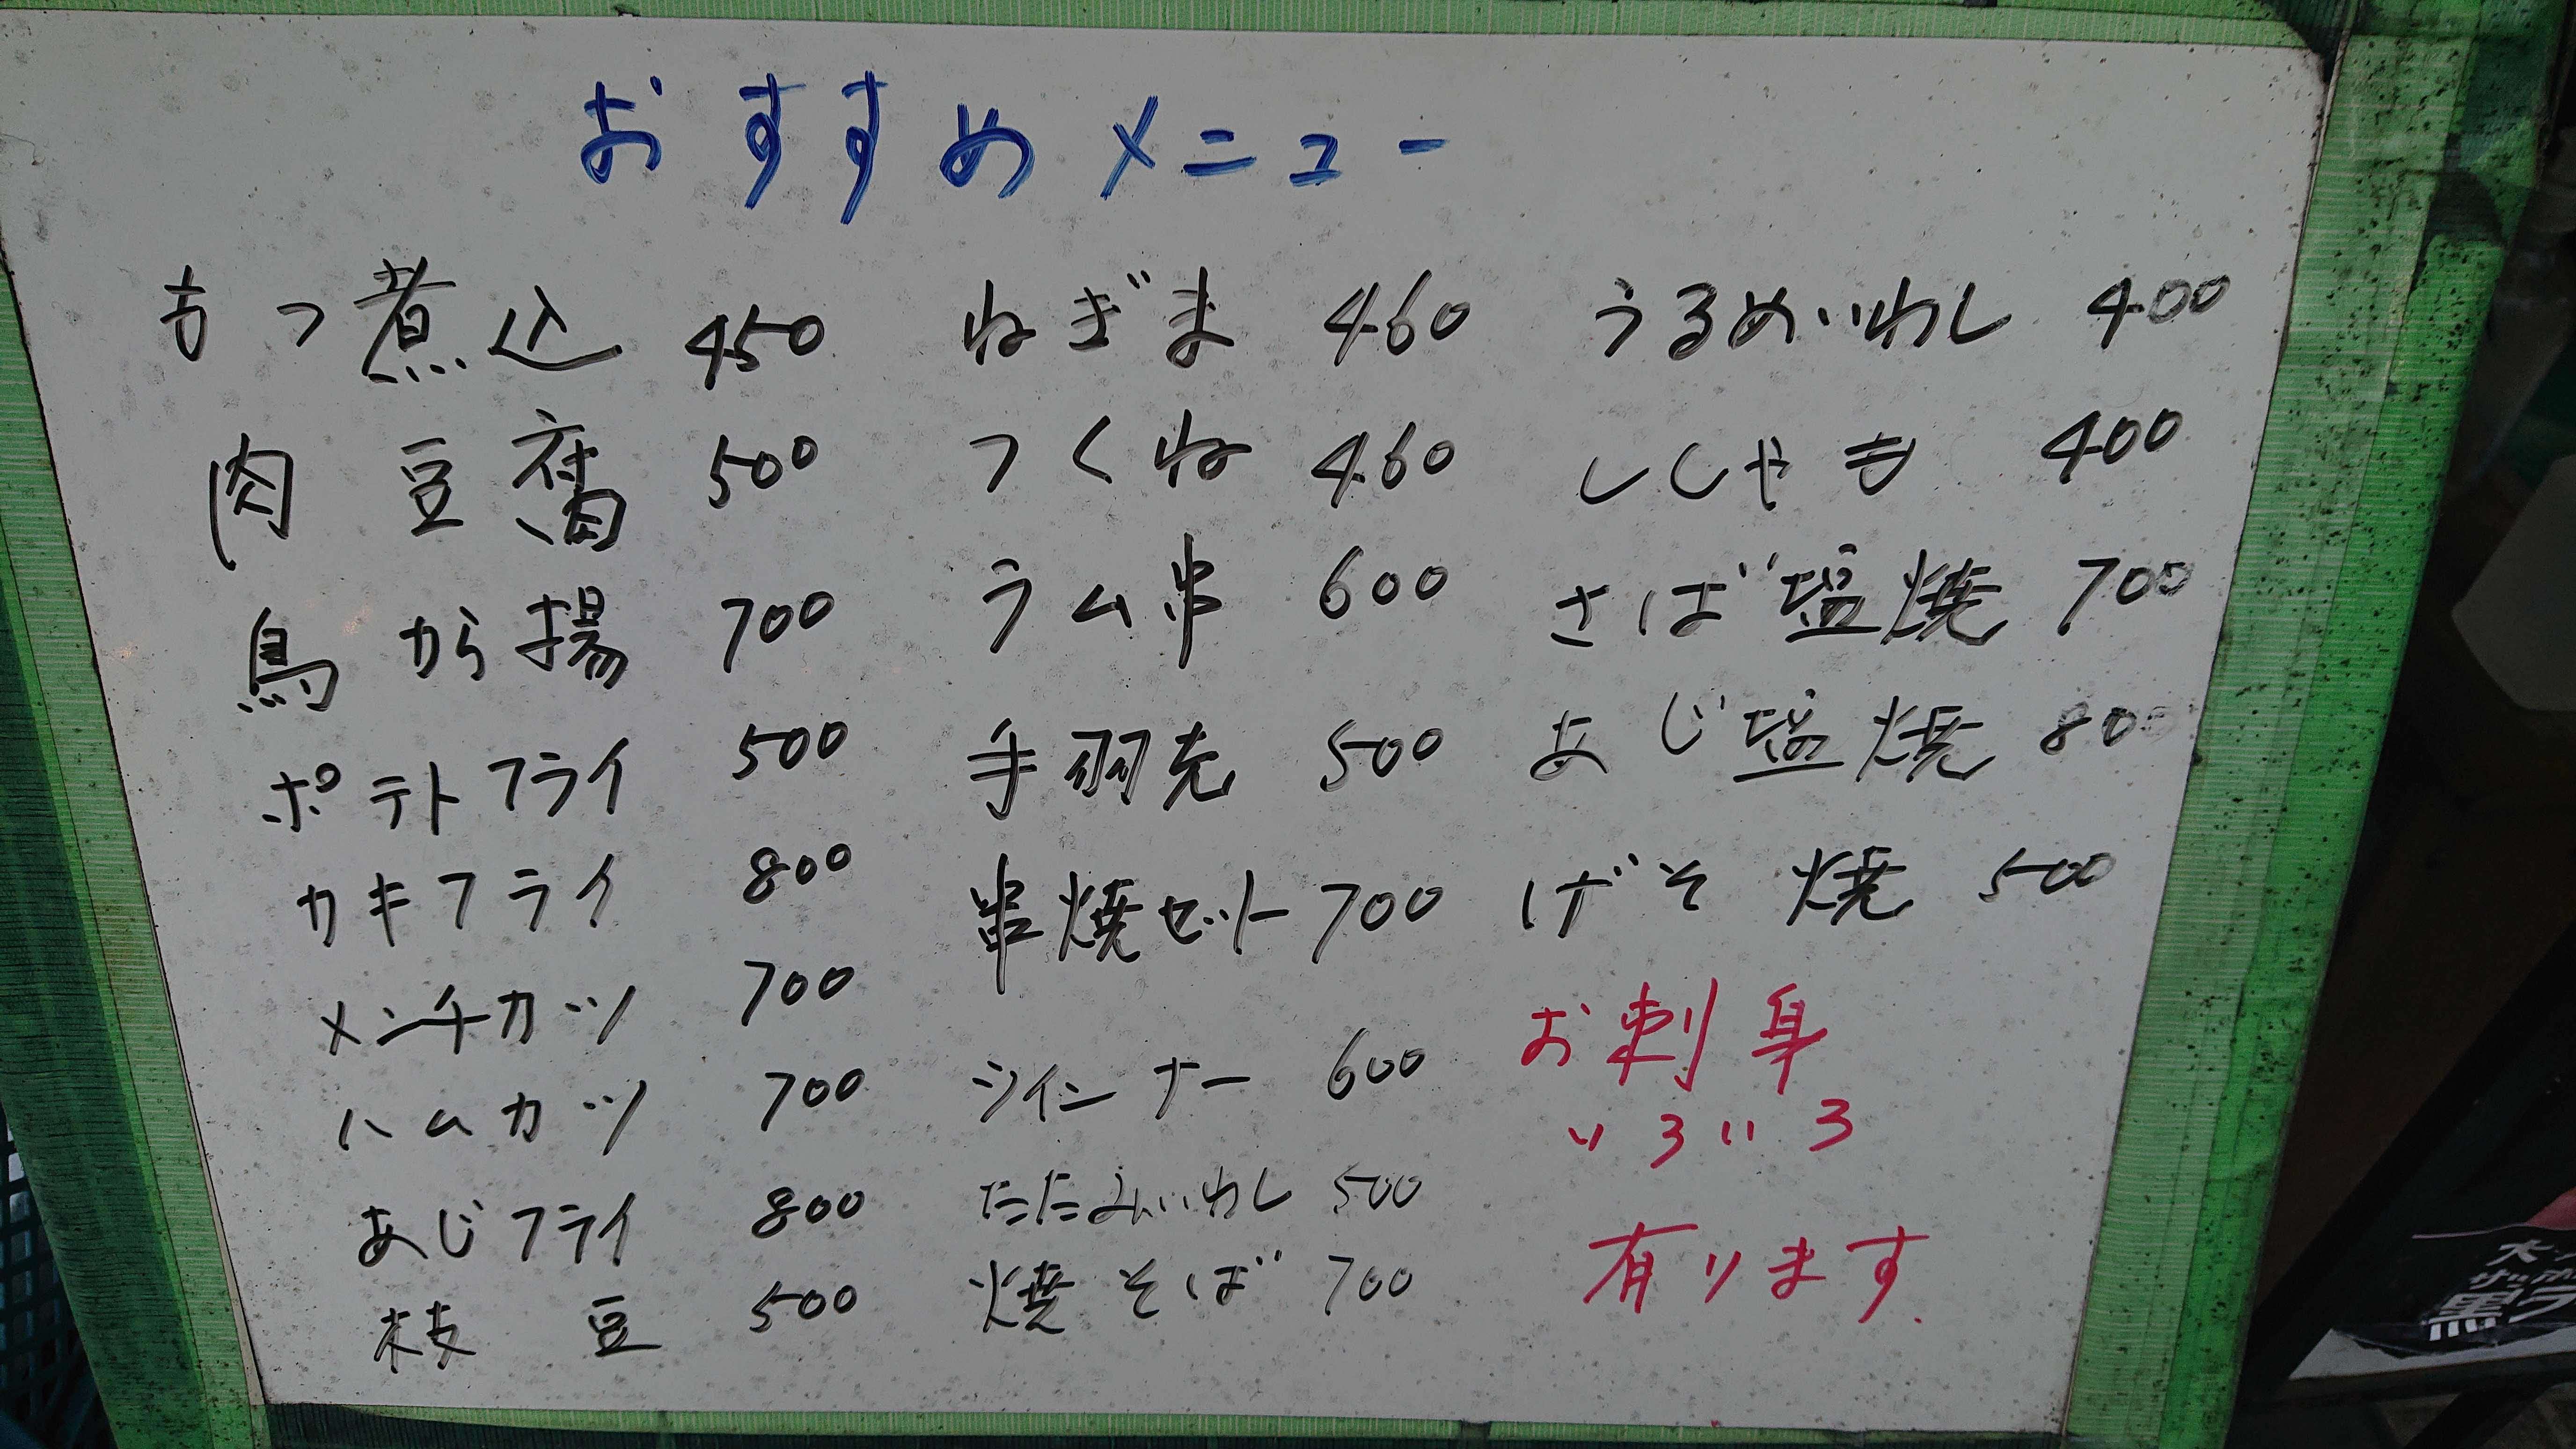 おすすめメニュー
もつ煮込 450
肉豆腐 500
鳥から揚 700
ポテトフライ 500
カキフライ 800
メンチカツ 700
ハムカツ 700
あじフライ 800
枝豆 500
ねぎま 460
つくね 460
ラム串 600
手羽先 500
串焼セット 700
ウインナー 600
たたみいわし 500
焼そば 700
うるめいわし 400
ししゃも 400
さば塩焼 700
あじ塩焼 800
げそ焼 500
お刺身
いろいろ
有ります.